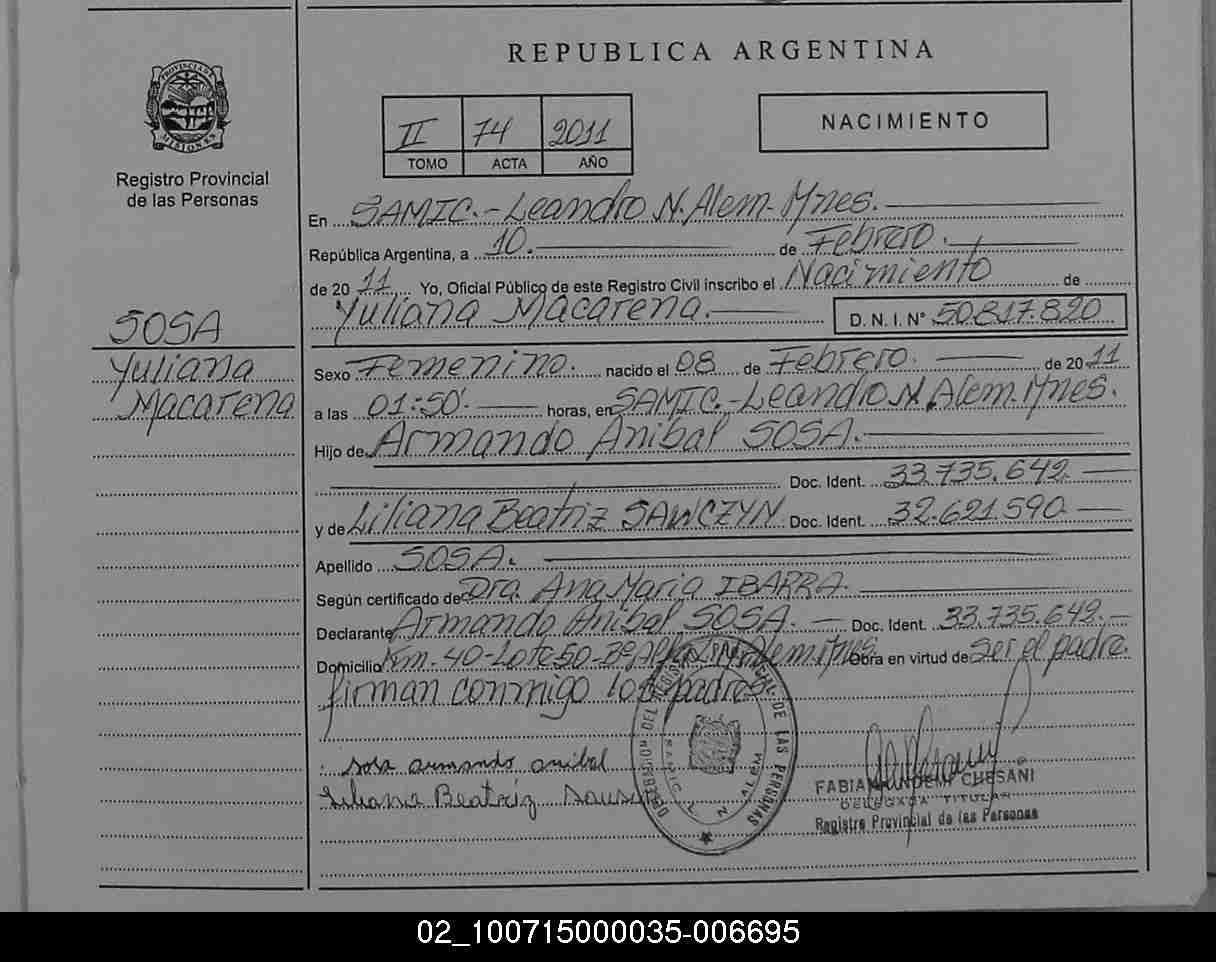 REPUBLICA ARGENTINA
PROVINCIA DE
MISIONES
Registro Provincial
de las Personas
II 74 2011
TOMO ACTA AÑO
NACIMIENTO
En SAMIC.- Leandro N. Alem- Mnes.
República Argentina, a 10. de Febrero.
de 20 11 Yo, Oficial Público de este Registro Civil inscribo el Nacimiento de
Yuliana Macarena. D. N. I. N° 50.817.820
SOSA
Yuliana
Macarena
Sexo Femenino. nacido el 08 de Febrero. de 20 11
a las 01:50. horas, en SAMIC.- Leandro N. Alem- Mnes.
Hijo de Armando Anibal SOSA.
Doc. Ident. 33.735.642.
y de Liliana Beatriz SAWCZYN. Doc. Ident. 32.621.590.
Apellido SOSA.
Según certificado de Dra. Ana Maria IBARRA.
Declarante Armando Anibal SOSA. Doc. Ident. 33.735.642.
Domicilio Km. 40-Lote 50-Bº Alem-Mnes. Obra en virtud de ser el padre.
firman conmigo los padres
sosa armando anibal
Liliana Beatriz
DE LAS PERSONAS
SAMIC L. N. ALEM
FABIANA NOEMI CHESANI
DELEGADA TITULAR
Registro Provincial de las Personas
02_100715000035-006695